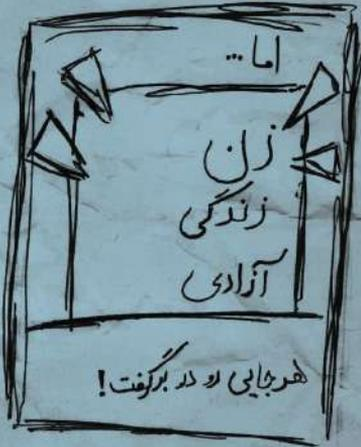 اما...
زن
زندگی
آزادی
هرجایی رو در برگرفت!